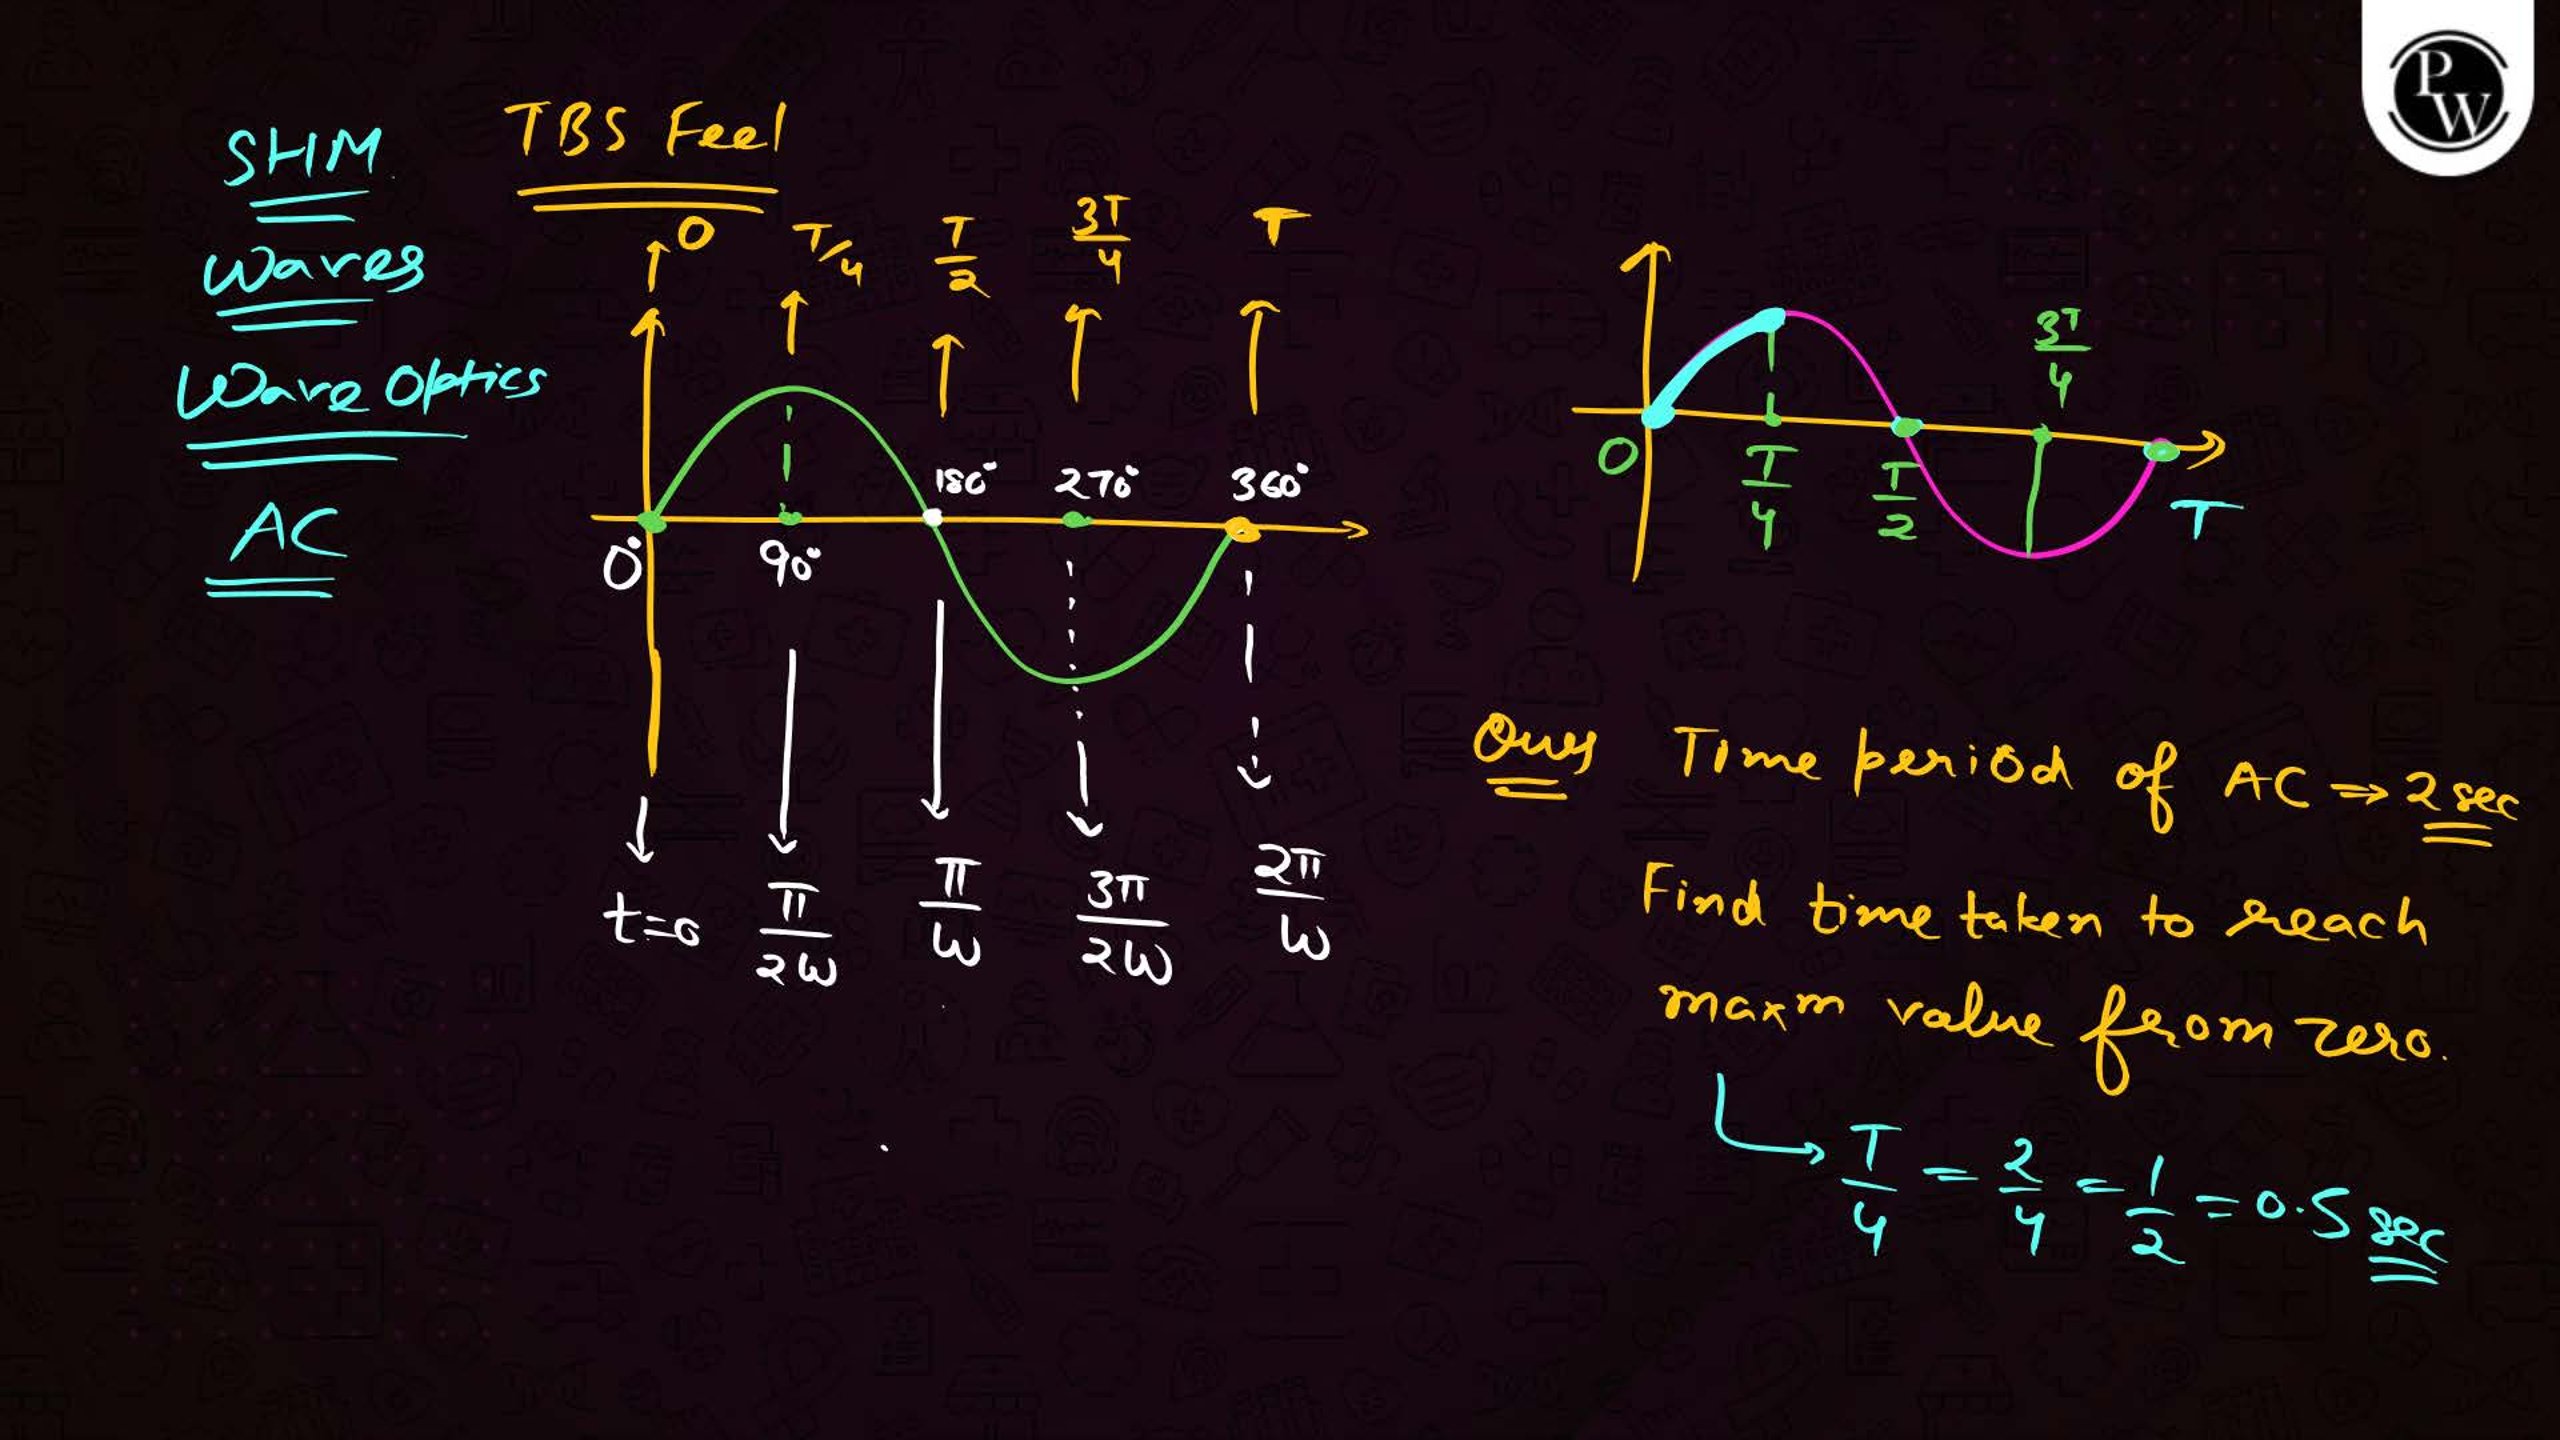 SHM
Waves
Wave Optics
AC
TBS Feel
0 T/4 T/2 3T/4 T
180° 270° 360°
0° 90°
t=0 π/2ω π/ω 3π/2ω 2π/ω
3T/4
0 T/4 T/2 T
Ques Time period of AC ⇒ 2 sec
Find time taken to reach
maxm value from zero.
T/4 = 2/4 = 1/2 = 0.5 sec
PW